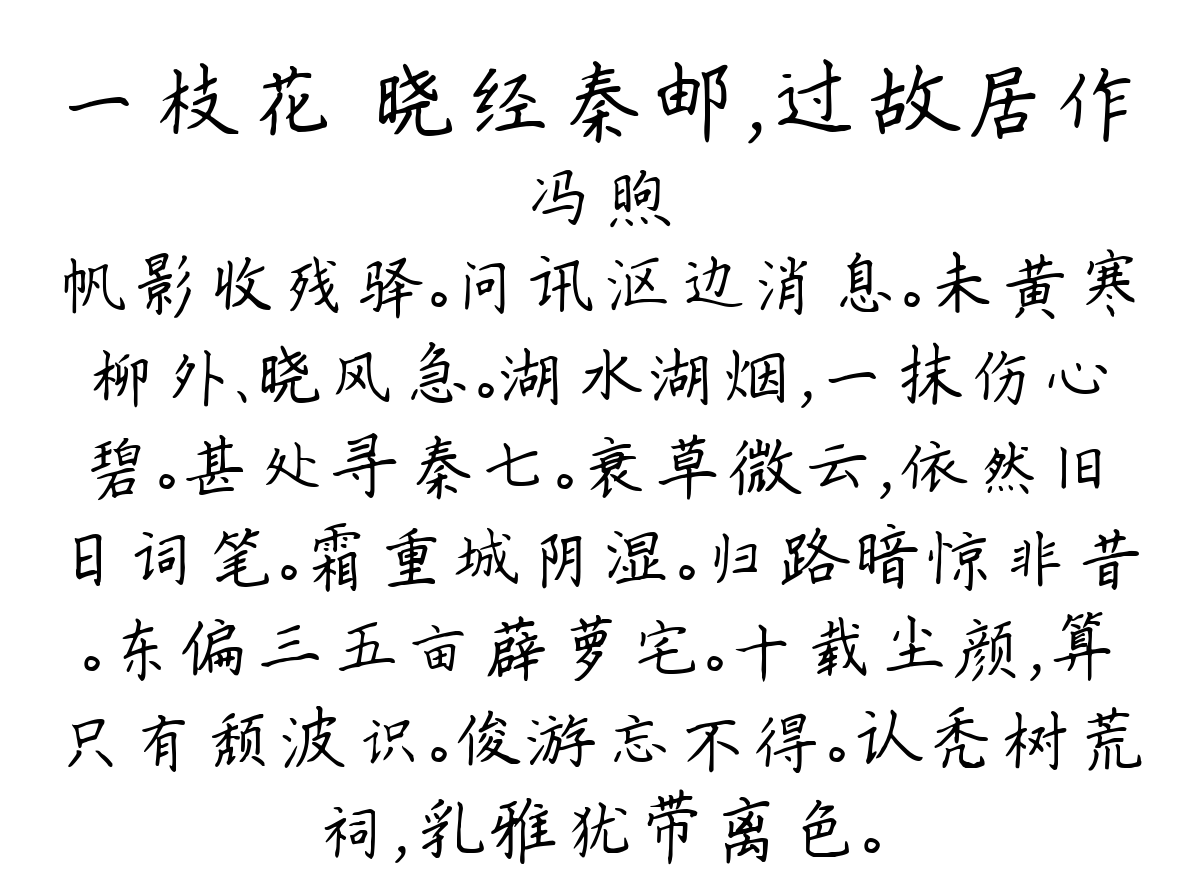 一枝花 晓经秦邮,过故居作
冯煦
帆影收残驿。问讯沤边消息。未黄寒
柳外、晓风急。湖水湖烟,一抹伤心
碧。甚处寻秦七。衰草微云,依然旧
日词笔。霜重城阴湿。归路暗惊非昔
。东偏三五亩薜萝宅。十载尘颜,算
只有颓波识。俊游忘不得。认秃树荒
祠,乳雅犹带离色。